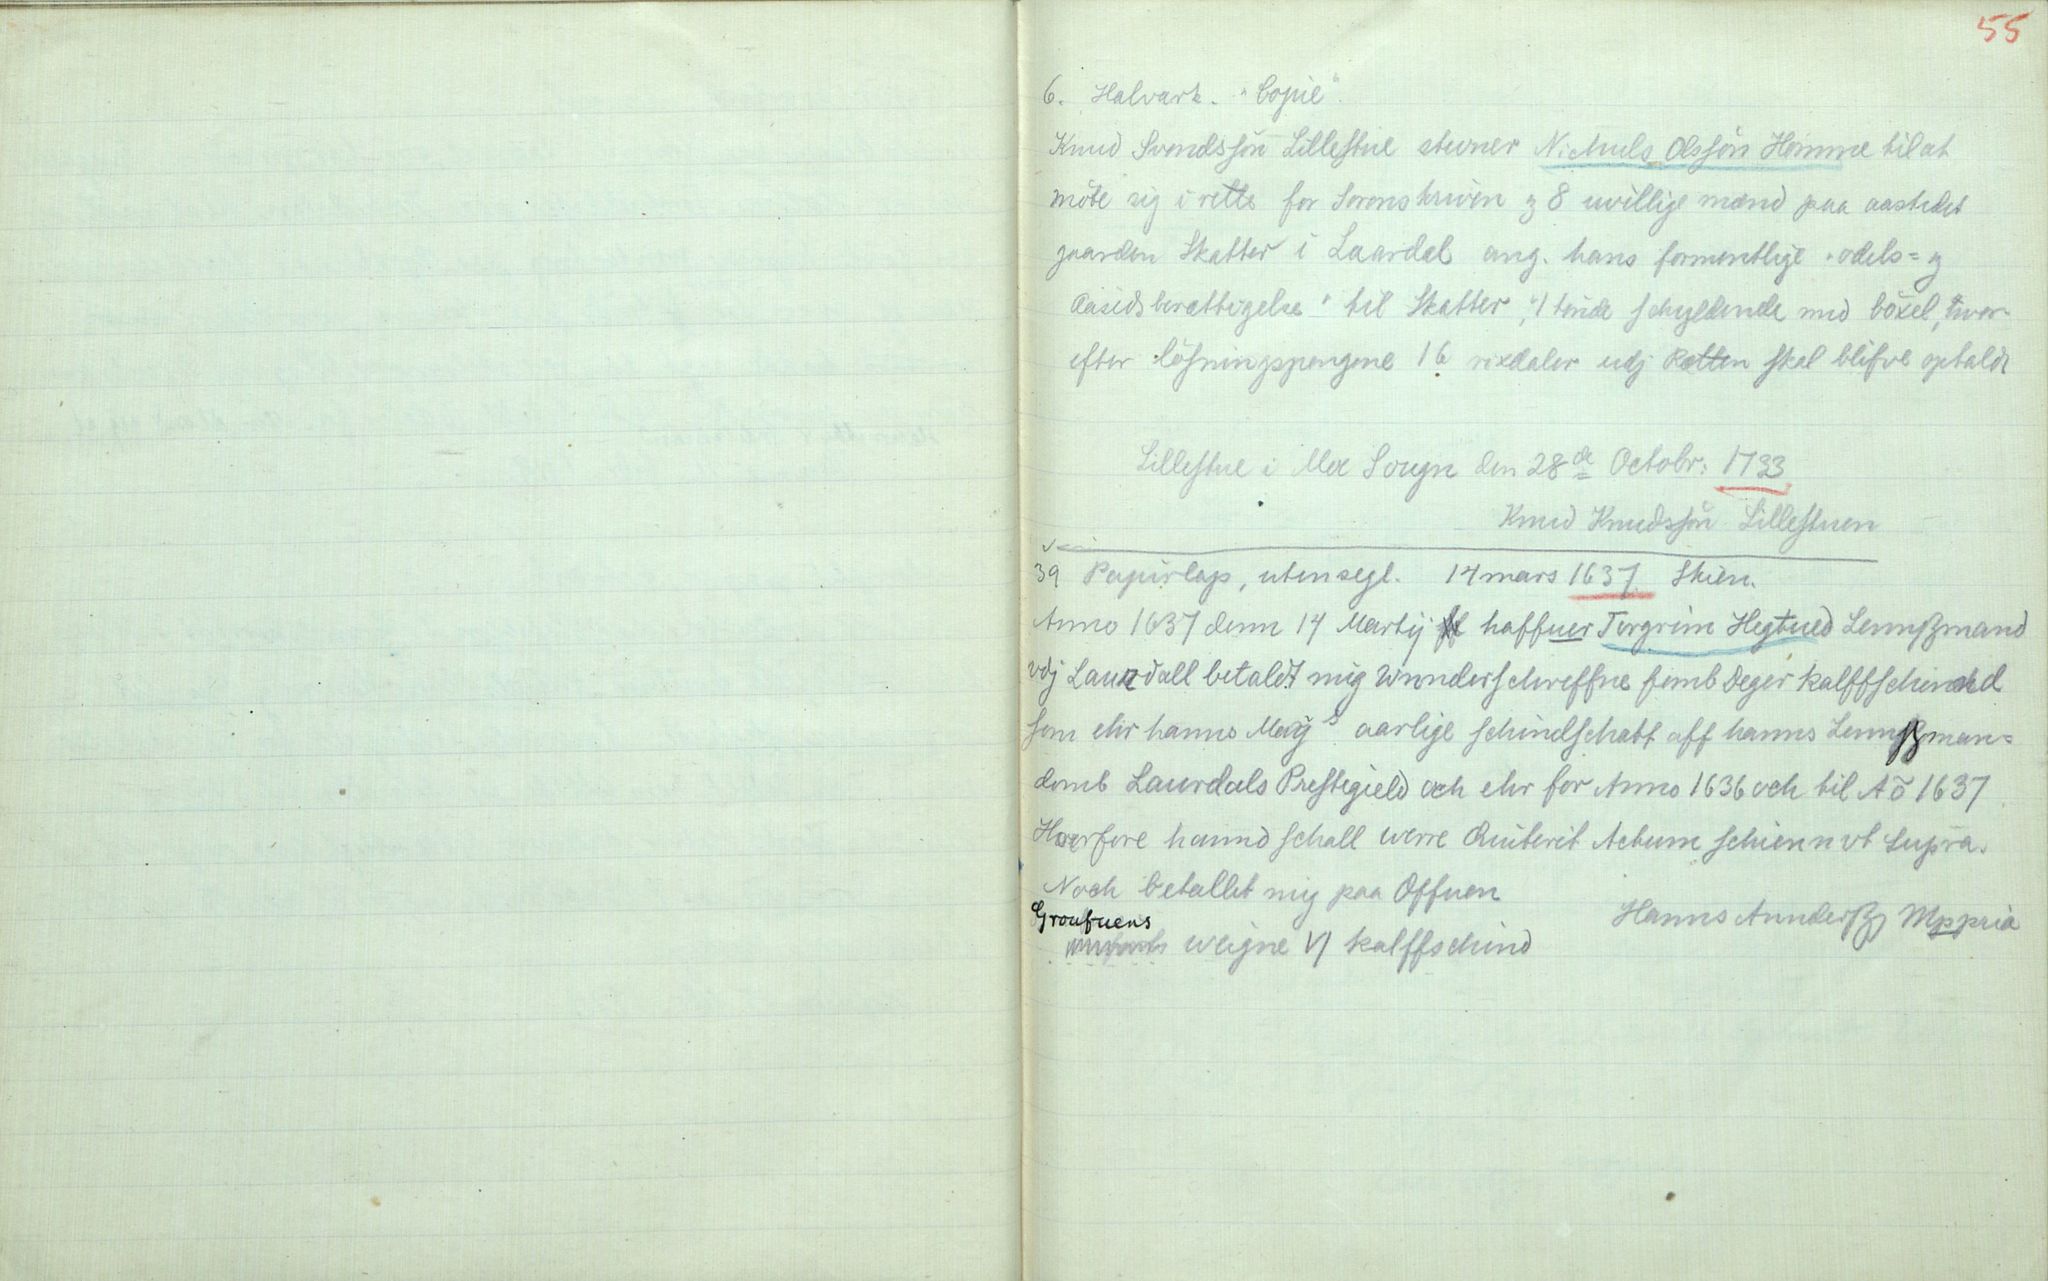 55
6. Halvark. "Copie".
Knud Svendssøn Lillestue stevner Nichuls Olssøn Homme til at
møte sig i rette for Sorenskriven og 8 uvillige mænd paa aastedet
gaarden Skatter i Laardal ang. hans formentlige "odels= og
Aasædsberættigelse" til Skatter, "1 tønde schyldende med böxel, hvor-
efter løsningspengene 16 rixdaler udj Rætten skal blifve optaldt
Lillestue i Moe Sougn den 28de Octobr: 1733
Knud Knudssøn Lillestuen
39 Papirlap, uten segl. 14 mars 1637 Skien.
Anno 1637 denn 14 Martij haffuer Torgrim Hegtued Lennßmand
vdj Laurdall betaldt mig Wnnderschreffne femb Deger kalffschind
som ehr hanns Mays aarlige schindschatt aff hanns Lennßman=
domb Laurdals Prestegield och ehr for Anno 1636 och til Aō 1637
Horfore hannd schall werre Quiterit Actum schienn vt supra.
Noch betallet mig paa Offuen
Hanns Anderß Mppria
Groufuens
weigne VI kalffschind